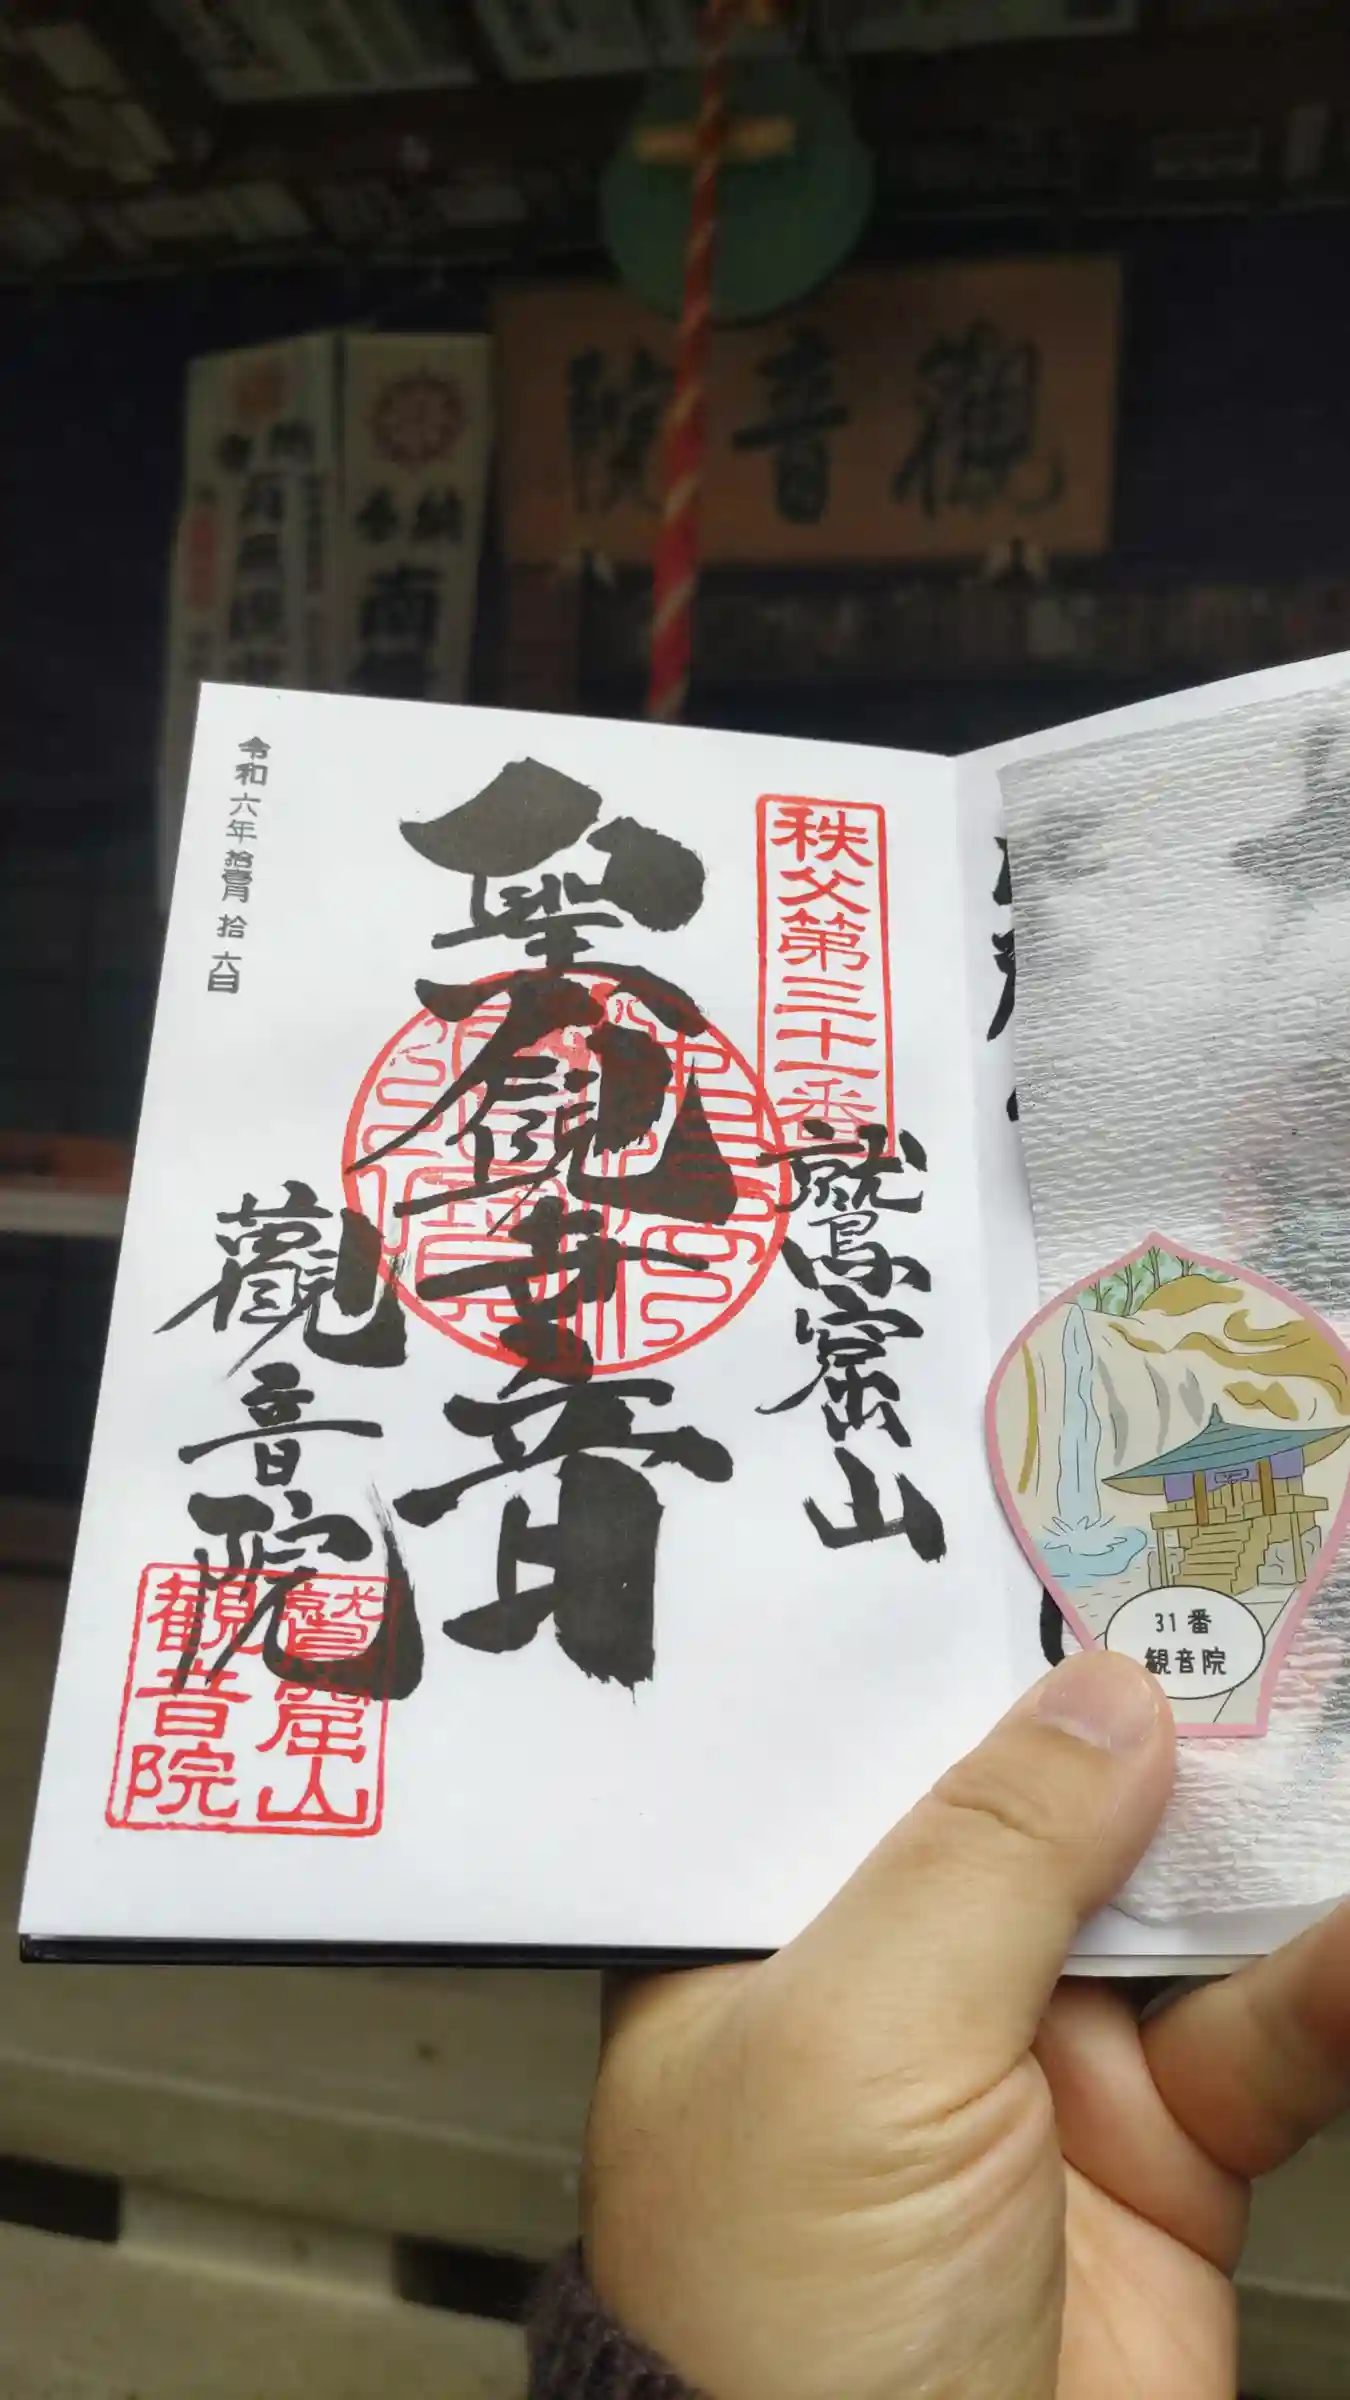 觀音院
奉納
南
秩父第三十一番
鷲窟山
聖観世音
觀音院
令和六年拾壹月拾六日
鷲窟山
観音院
31番
観音院